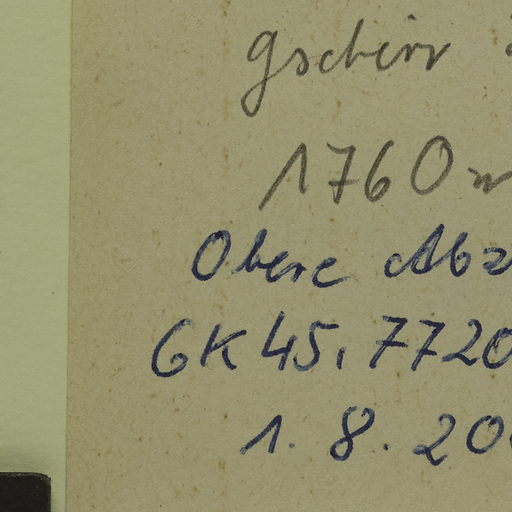 gschirr
1760 m
Obere Abz
GK 45, 7720
1. 8. 20